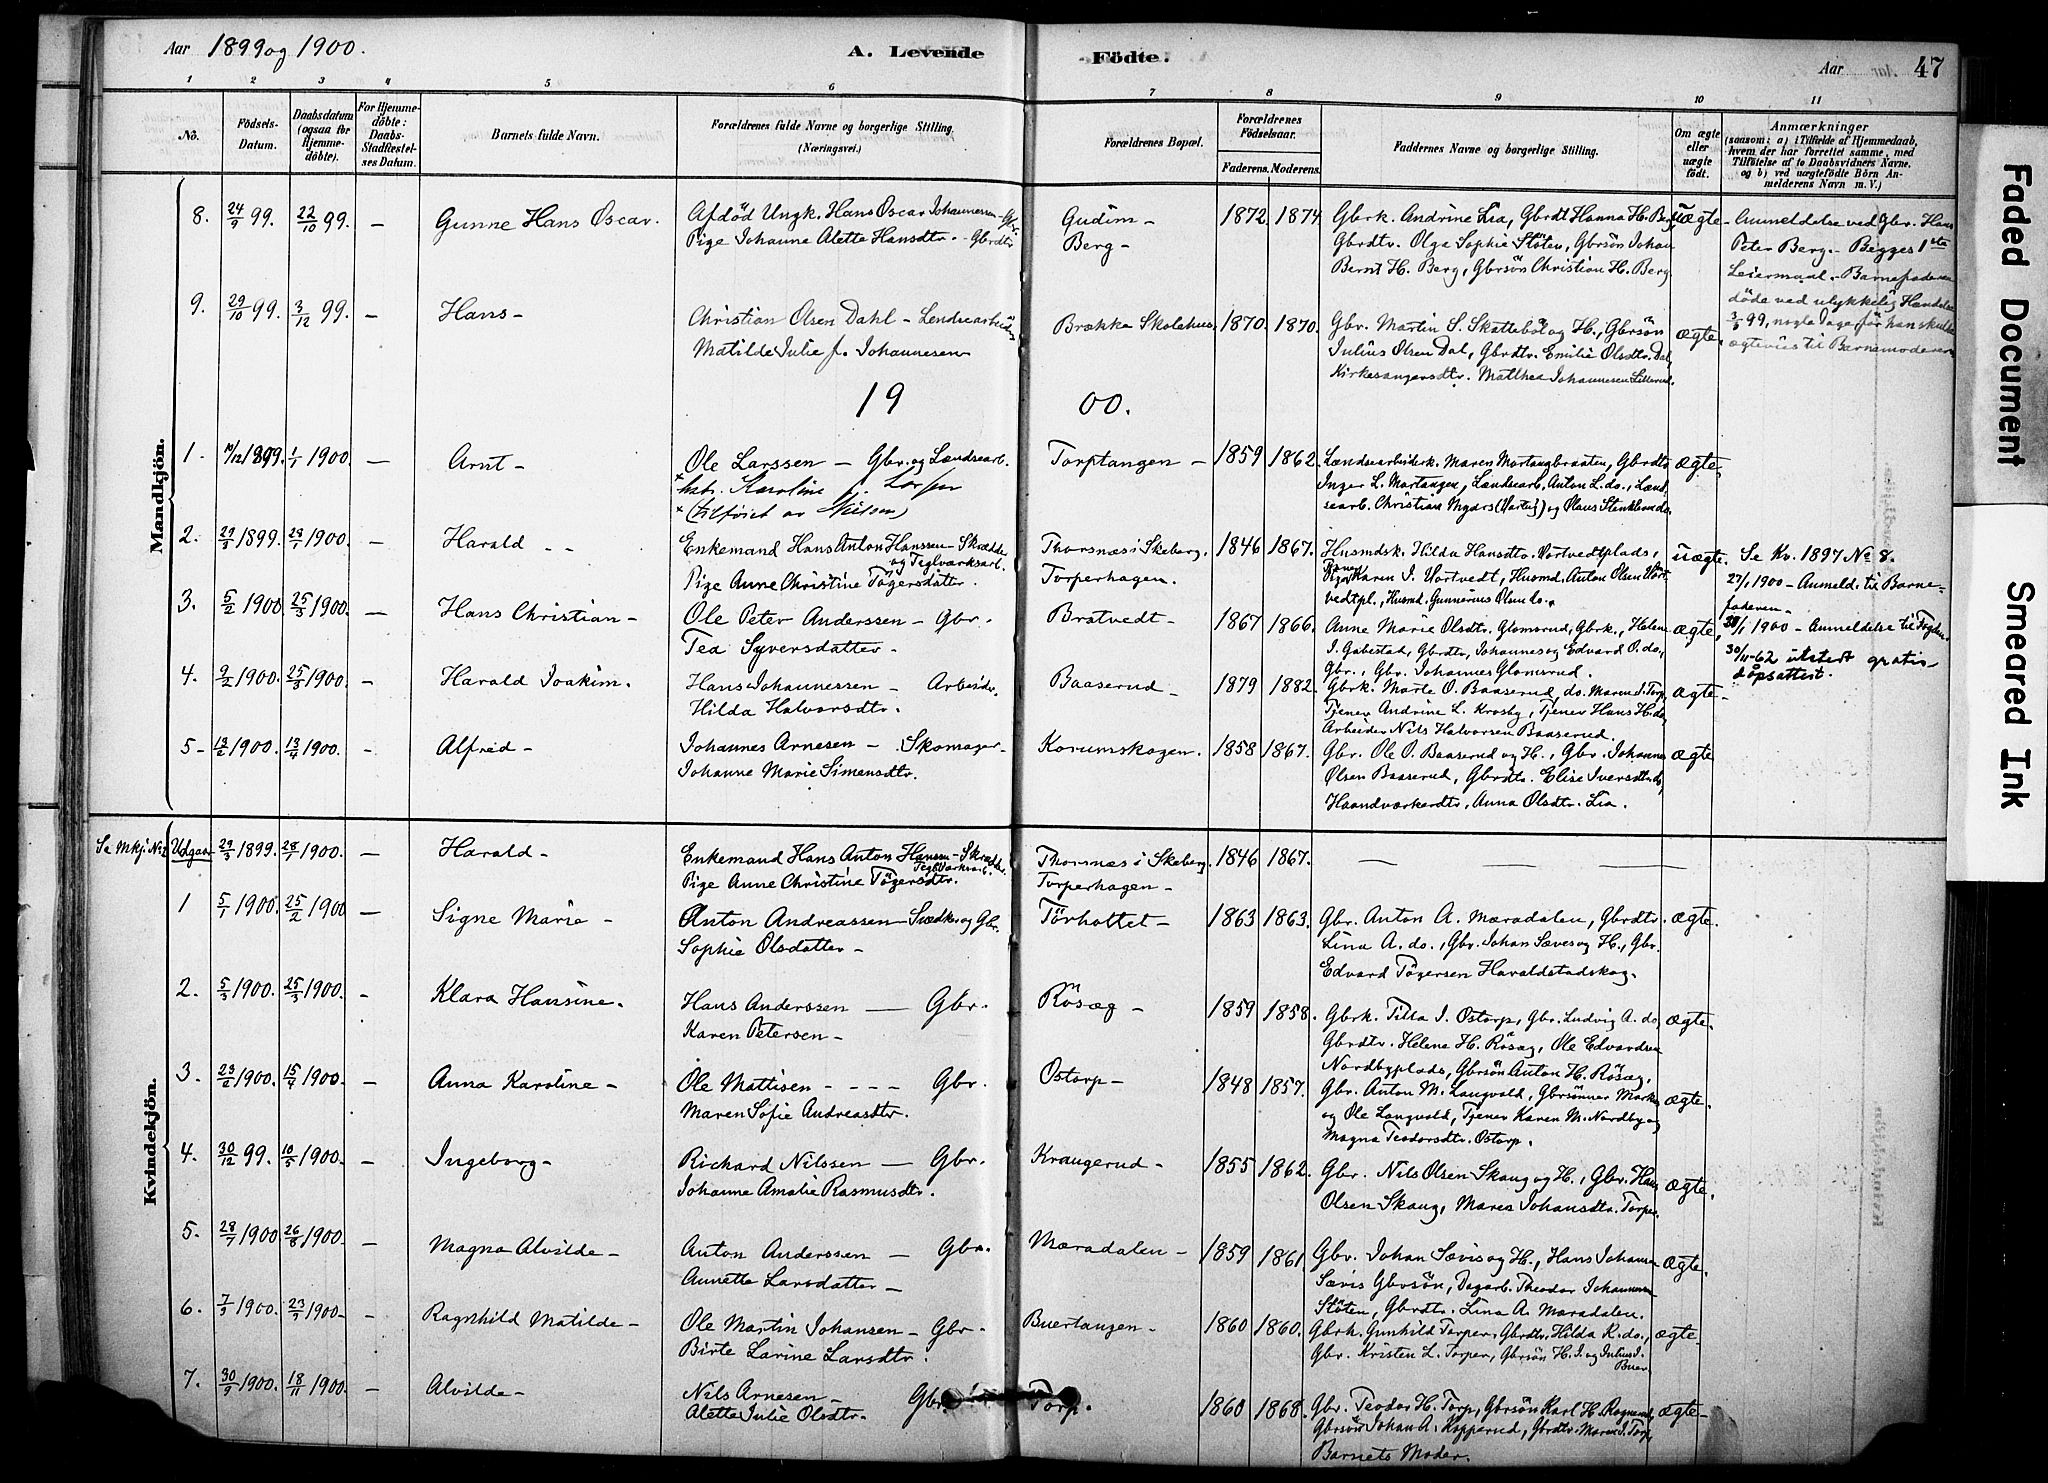 Aar 1899 og 1900.
A. Levende
Födte.
Aar
47
1 2 3 4 5 6 7 8 9 10 11
No.
Födsels-Datum.
Daabsdatum (ogsaa for Hjemme-döbte).
For Hjemme-döbte: Daabs-Stadfæstel-ses Datum.
Barnets fulde Navn.
Forældrenes fulde Navne og borgerlige Stilling. (Næringsvei.)
Forældrenes Bopæl.
Forældrenes Födselsaar.
Faderens. Moderens.
Faddernes Navne og borgerlige Stilling.
Om ægte eller uægte födt.
Anmærkninger
(saasom: a) i Tilfælde af Hjemmedaab, hvem der har forrettet samme, med Tilföielse af to Daabsvidners Navne. og b) ved uægtefödte Börn Anmelderens Navn m. V.)
Mandkjön.
8. 24/9 99. 22/10 99. – Gunne Hans Oscar. Afdöd Ungk. Hans Oscar Johannessen – Gbr. Gudim – 1872. 1874. Gbrk. Andrine Lia, Gbrdt Hanna H. Berg, uægte – Anmeldelse ved Gbr. Hans
Pige Johanne Alette Hansdtr. – Gbrdtr Berg – Gbrdtr. Olga Sophie Stöten, Gbrsön Johan Peter Berg. – Begges 1ste
Bernt H. Berg, Gbrsön Christian H. Berg Leiermaal. – Barnefaderen
döde ved ulykkelig Hændelse
9. 29/10 99. 3/12 99. – Hans – Christian Olsen Dahl – Lendsearbeider Brække Skolehus, 1870. 1870. Gbr. Martin S. Skatteböl og H., Gbrsön ægte.
99, nogle Dage för han skulde
Matilde Julie f. Johannesen Julius Olsen Dal, Gbrdtr. Emilie Olsdtr. Dal, ægtevies til Barnemoderen
Kirkesangersdtr. Matthea Johannesen Lillerud.
19 00.
1. 17/12 1899. 1/1 1900. – Arnt – Ole Larssen – Gbr. og Lændsearb. Torptangen – 1859 1862. Lændsearbiderk. Maren Mortangbraaten, Gbrdtr ægte.
× hstr. Karoline f. Inger L. Mortangen, Lændsearb. Anton L. do., Lænd
× (tilföiet av Nielsen) searb. Christian
2. 29/3 1899. 28/1 1900. – Harald – – Enkemand Hans Anton Hanssen – Skrædder Thorsnæs i Skeberg. 1846 1867. Husmdsk. Hilda Hansdtr. Hortvedtplads, uægte. Se Kv. 1897 No 8.
og Teglværksarb.
Pige Anne Christine Tögersdatter. Torperhagen. Karen I. Hortvedt, Husmd. Anton Olsen Hort 27/1 1900 – Anmeld. til Barne-
vedtpl., Husmd. Gunnerius Olsen do. faderen –
3. 5/2 1900 25/3 1900. – Hans Christian – Ole Peter Anderssen – Gbr. Bratvedt – 1867 1866. Anne Marie Olsdtr. Glomsrud, Gbrk., Helene ægte. 30/1 1900 – Anmeldelse til Fogden.
Tea Syversdatter – I. Gabestad, Gbrdtr, Johannes og Edvard O. do., 30/11-62 utstedt gratis
Gbr., Gbr. Johannes Glomsrud. dåpsattest.
4. 9/2 1900. 25/3 1900. – Harald Joakim. Hans Johannessen – Arbeider. Baaserud – 1879 1882. Gbrk. Marte O. Baaserud, do. Maren I. Torp, ægte –
Hilda Halvorsdtr. Tjener Andrine L. Krosby, Tjener Hans H. do,
Arbeider Nils Halvorsen Baaserud.
5 – 13/2 1900. 13/4 1900. – Alfred – Johannes Arnesen – Skomager – Korumskogen. 1858 1867. Gbr. Ole O. Baaserud og H., Gbr. Johannes ægte
Johanne Marie Simensdtr. Olsen Baaserud, Gbrdtr. Elise Iversdtr. do,
Haandværkerdtr, Anna Olsdtr. Lia.
Kvindekjön.
Se Mkj. No 2 Udgaar 29/3 1899. 28/1 1900. – Harald – Enkemand Hans Anton Hansen – Skrædder Thorsnæs i Skeberg. 1846 1867. – – –
Teglværksarb.
Pige Anne Christine Tögersdtr. Torperhagen –
1 5/1 1900. 25/2 1900 – Signe Marie – Anton Andreassen – Snedker og Gbr. Törholtet – 1863 1863. Gbr. Anton A. Mæradalen, Gbrdtr. ægte.
Sophie Olsdatter – Lina A. do., Gbr. Johan Sæves og H., Gbr.
Edvard Tögersen Haraldstadskog.
2. 5/3 1900. 25/3 1900. – Klara Hansine. Hans Anderssen – Gbr. Rösæg – 1859 1858. Gbrk. Tilla I. Ostorp, Gbr. Ludvig A. do, ægte.
Karen Petersen – Gbrdtr. Helene H. Rösæg, Ole Edvardsen
Nordbyplads, Gbrsön Anton H. Rösæg.
3. 23/2 1900. 15/4 1900. – Anna Karoline – Ole Mattisen – – – – Gbr. Ostorp – 1848 1857. Gbr. Anton M. Langvold, Gbrsönner Martin ægte.
Maren Sofie Andreasdtr. og Ole Langvold, Tjener Karen M. Nordby og
Magna Teodorsdtr. Ostorp.
4. 30/12 99. 10/5 1900. – Ingeborg – Richard Nilssen – Gbr. Kraugerud – 1855 1862. Gbr. Nils Olsen Skaug og H., Gbr. Hans ægte.
Johanne Amalie Rasmusdtr. Olsen Skaug, Maren Johansdtr. Torper.
5. 28/7 1900. 26/8 1900. – Magna Alvilde – Anton Anderssen – Gbr. Mæradalen – 1859 1861. Gbr. Johan Sævis og H., Hans Johansen ægte.
Annette Larsdatter – Sævis Gbrsön, Dagarb. Theodor Johannesen
Stöten, Gbrdtr. Lina A. Mæradalen.
6. 7/9 1900. 23/9 1900. – Ragnhild Matilde – Ole Martin Johansen – Gbr – Buertangen – 1860 1860. Gbrk. Gunhild Torper. Gbrdtr. Hilda R. do., ægte –
Birte Larine Larsdtr. Gbr. Kristen L. Torper, Gbrsön H. I. og Julius I.
Buer
7. 30/9 1900. 18/11 1900. – Alvilde – Nils Arnesen – Gbr. Torp. 1860 1868. Gbr. Teodor H. Torp, Gbrsön Karl H. Rognerud, ægte –
Alette Julie Olsdtr. Gbrsön Johan A. Kopperud, Gbrdtr. Maren I. Torp,
Barnets Moder.
Faded Document
Smeared Ink